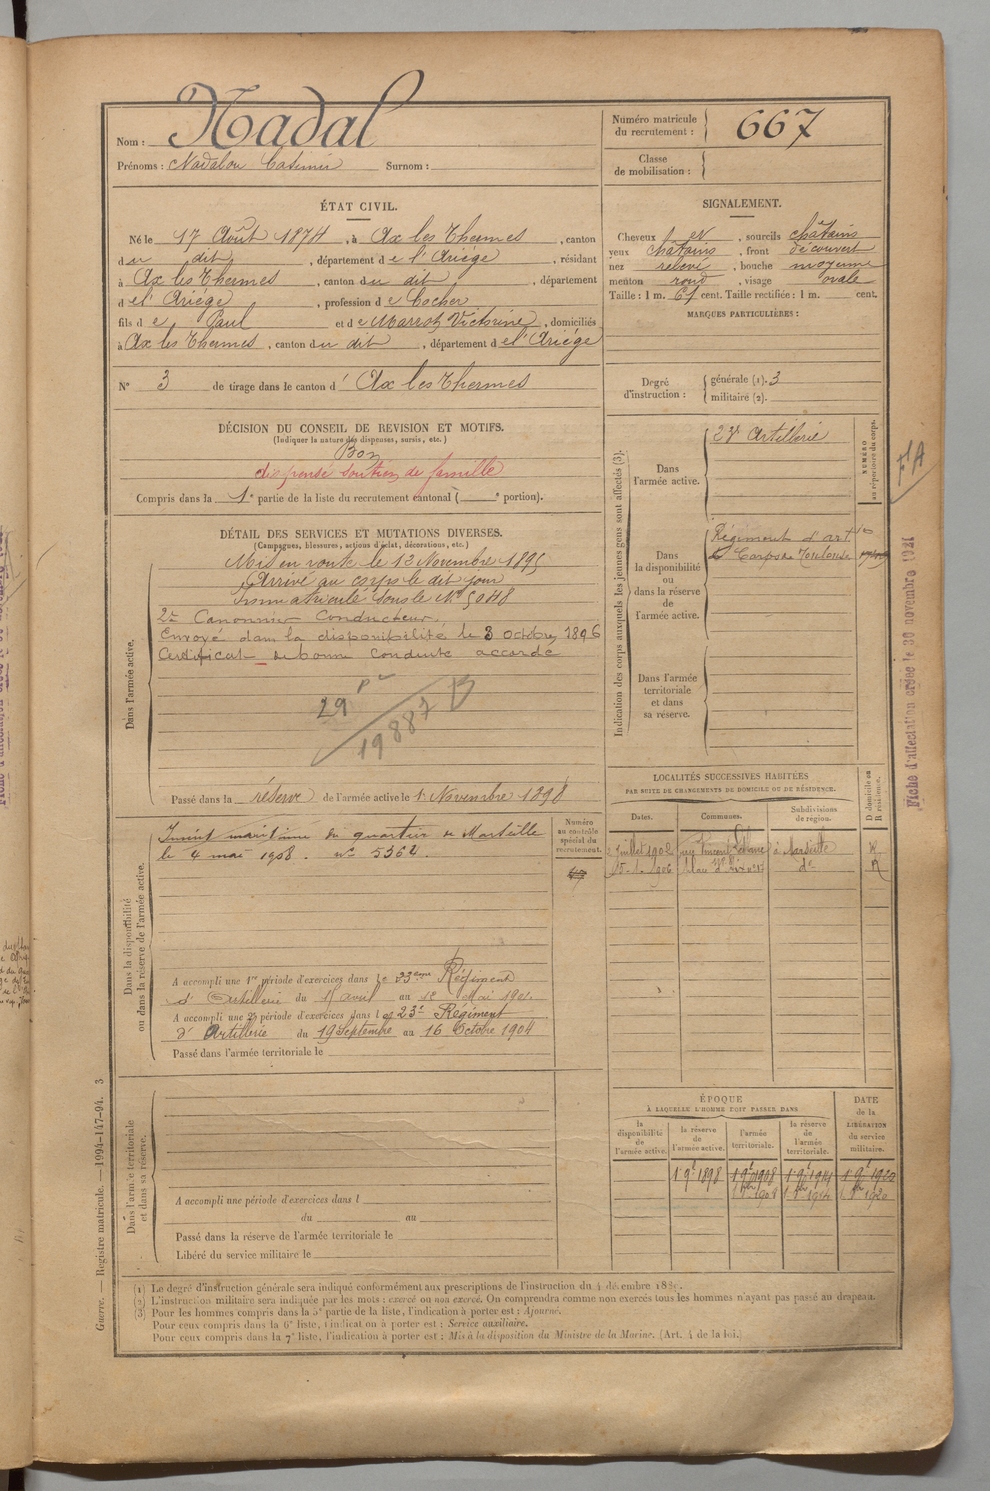 Nom : Nadal
Prénoms : Nadalou Casimir Surnom :
Numéro matricule du recrutement : 667
Classe de mobilisation :
ÉTAT CIVIL.
Né le 17 Août 1874, à Ax les Thermes, canton
du dit, département de l'Ariége, résidant
à Ax les Thermes, canton du dit, département
de l'Ariége, profession de Cocher
fils de Paul et de Marrot Victorine, domiciliés
à Ax les Thermes, canton du dit, département de l'Ariége
N° 3 de tirage dans le canton d' Ax les Thermes
SIGNALEMENT.
Cheveux et, sourcils châtains
yeux châtains, front découvert
nez relevé, bouche moyenne
menton rond, visage ovale
Taille : 1 m. 67 cent. Taille rectifiée : 1 m. cent.
MARQUES PARTICULIÈRES :
Degré d'instruction : générale (1). 3
militaire (2).
DÉCISION DU CONSEIL DE REVISION ET MOTIFS.
(Indiquer la nature des dispenses, sursis, etc.)
Bon
dispensé soutien de famille
Compris dans la 1e partie de la liste du recrutement cantonal ( e portion).
DÉTAIL DES SERVICES ET MUTATIONS DIVERSES.
(Campagnes, blessures, actions d'éclat, décorations, etc.)
Dans l'armée active.
Mis en route le 13 Novembre 1895
Arrivé au corps le dit jour
Immatriculé sous le N° 5048
2e Canonnier Conducteur,
Envoyé dans la disponibilité le 3 octobre 1896
Certificat de bonne conduite accordé
29
19887 B
Passé dans la réserve de l'armée active le 1 Novembre 1898
Indication des corps auxquels les jeunes gens sont affectés (3).
NUMÉRO au répertoire du corps.
Dans l'armée active.
23e Artillerie
Dans la disponibilité ou dans la réserve de l'armée active.
Régiment d'art ie
Corps de Toulouse
Dans l'armée territoriale et dans sa réserve.
Fiche d'affectation créée le 30 novembre 1921
LOCALITÉS SUCCESSIVES HABITÉES
PAR SUITE DE CHANGEMENTS DE DOMICILE OU DE RÉSIDENCE.
D domicile ou R résidence.
Dates. Communes. Subdivisions de région.
Juillet 1902 rue Vincent à Marseille R
15. 1. 1906 do R
Dans la disponibilité ou dans la réserve de l'armée active.
Numéro au contrôle spécial du recrutement.
Inscrit maritime du quartier de Marseille
le 4 mai 1908. n° 5362.
A accompli une 1re période d'exercices dans le 23eme Régiment
d' Artillerie du avril au Mai 1901
A accompli une 2e période d'exercices dans le 23e Régiment
d' Artillerie du 19 Septembre au 16 Octobre 1904
Passé dans l'armée territoriale le
Dans l'armée territoriale et dans sa réserve.
A accompli une période d'exercices dans l
du au
Passé dans la réserve de l'armée territoriale le
Libéré du service militaire le
ÉPOQUE
À LAQUELLE L'HOMME DOIT PASSER DANS
DATE de la LIBÉRATION du service militaire.
la disponibilité de l'armée active.
la réserve de l'armée active.
l'armée territoriale.
la réserve de l'armée territoriale.
1 9e 1898 1 9e 1908 1 9e 1914 1 9e 1920
1908 1914 1920
(1) Le degré d'instruction générale sera indiqué conformément aux prescriptions de l'instruction du 4 décembre 1889.
(2) L'instruction militaire sera indiquée par les mots : exercé ou non exercé. On comprendra comme non exercés tous les hommes n'ayant pas passé au drapeau.
(3) Pour les hommes compris dans la 5e partie de la liste, l'indication à porter est : Ajourné.
Pour ceux compris dans la 6e liste, l'indication à porter est : Service auxiliaire.
Pour ceux compris dans la 7e liste, l'indication à porter est : Mis à la disposition du Ministre de la Marine. (Art. 4 de la loi.)
Guerre. — Registre matricule. — 1994-147-94. 3